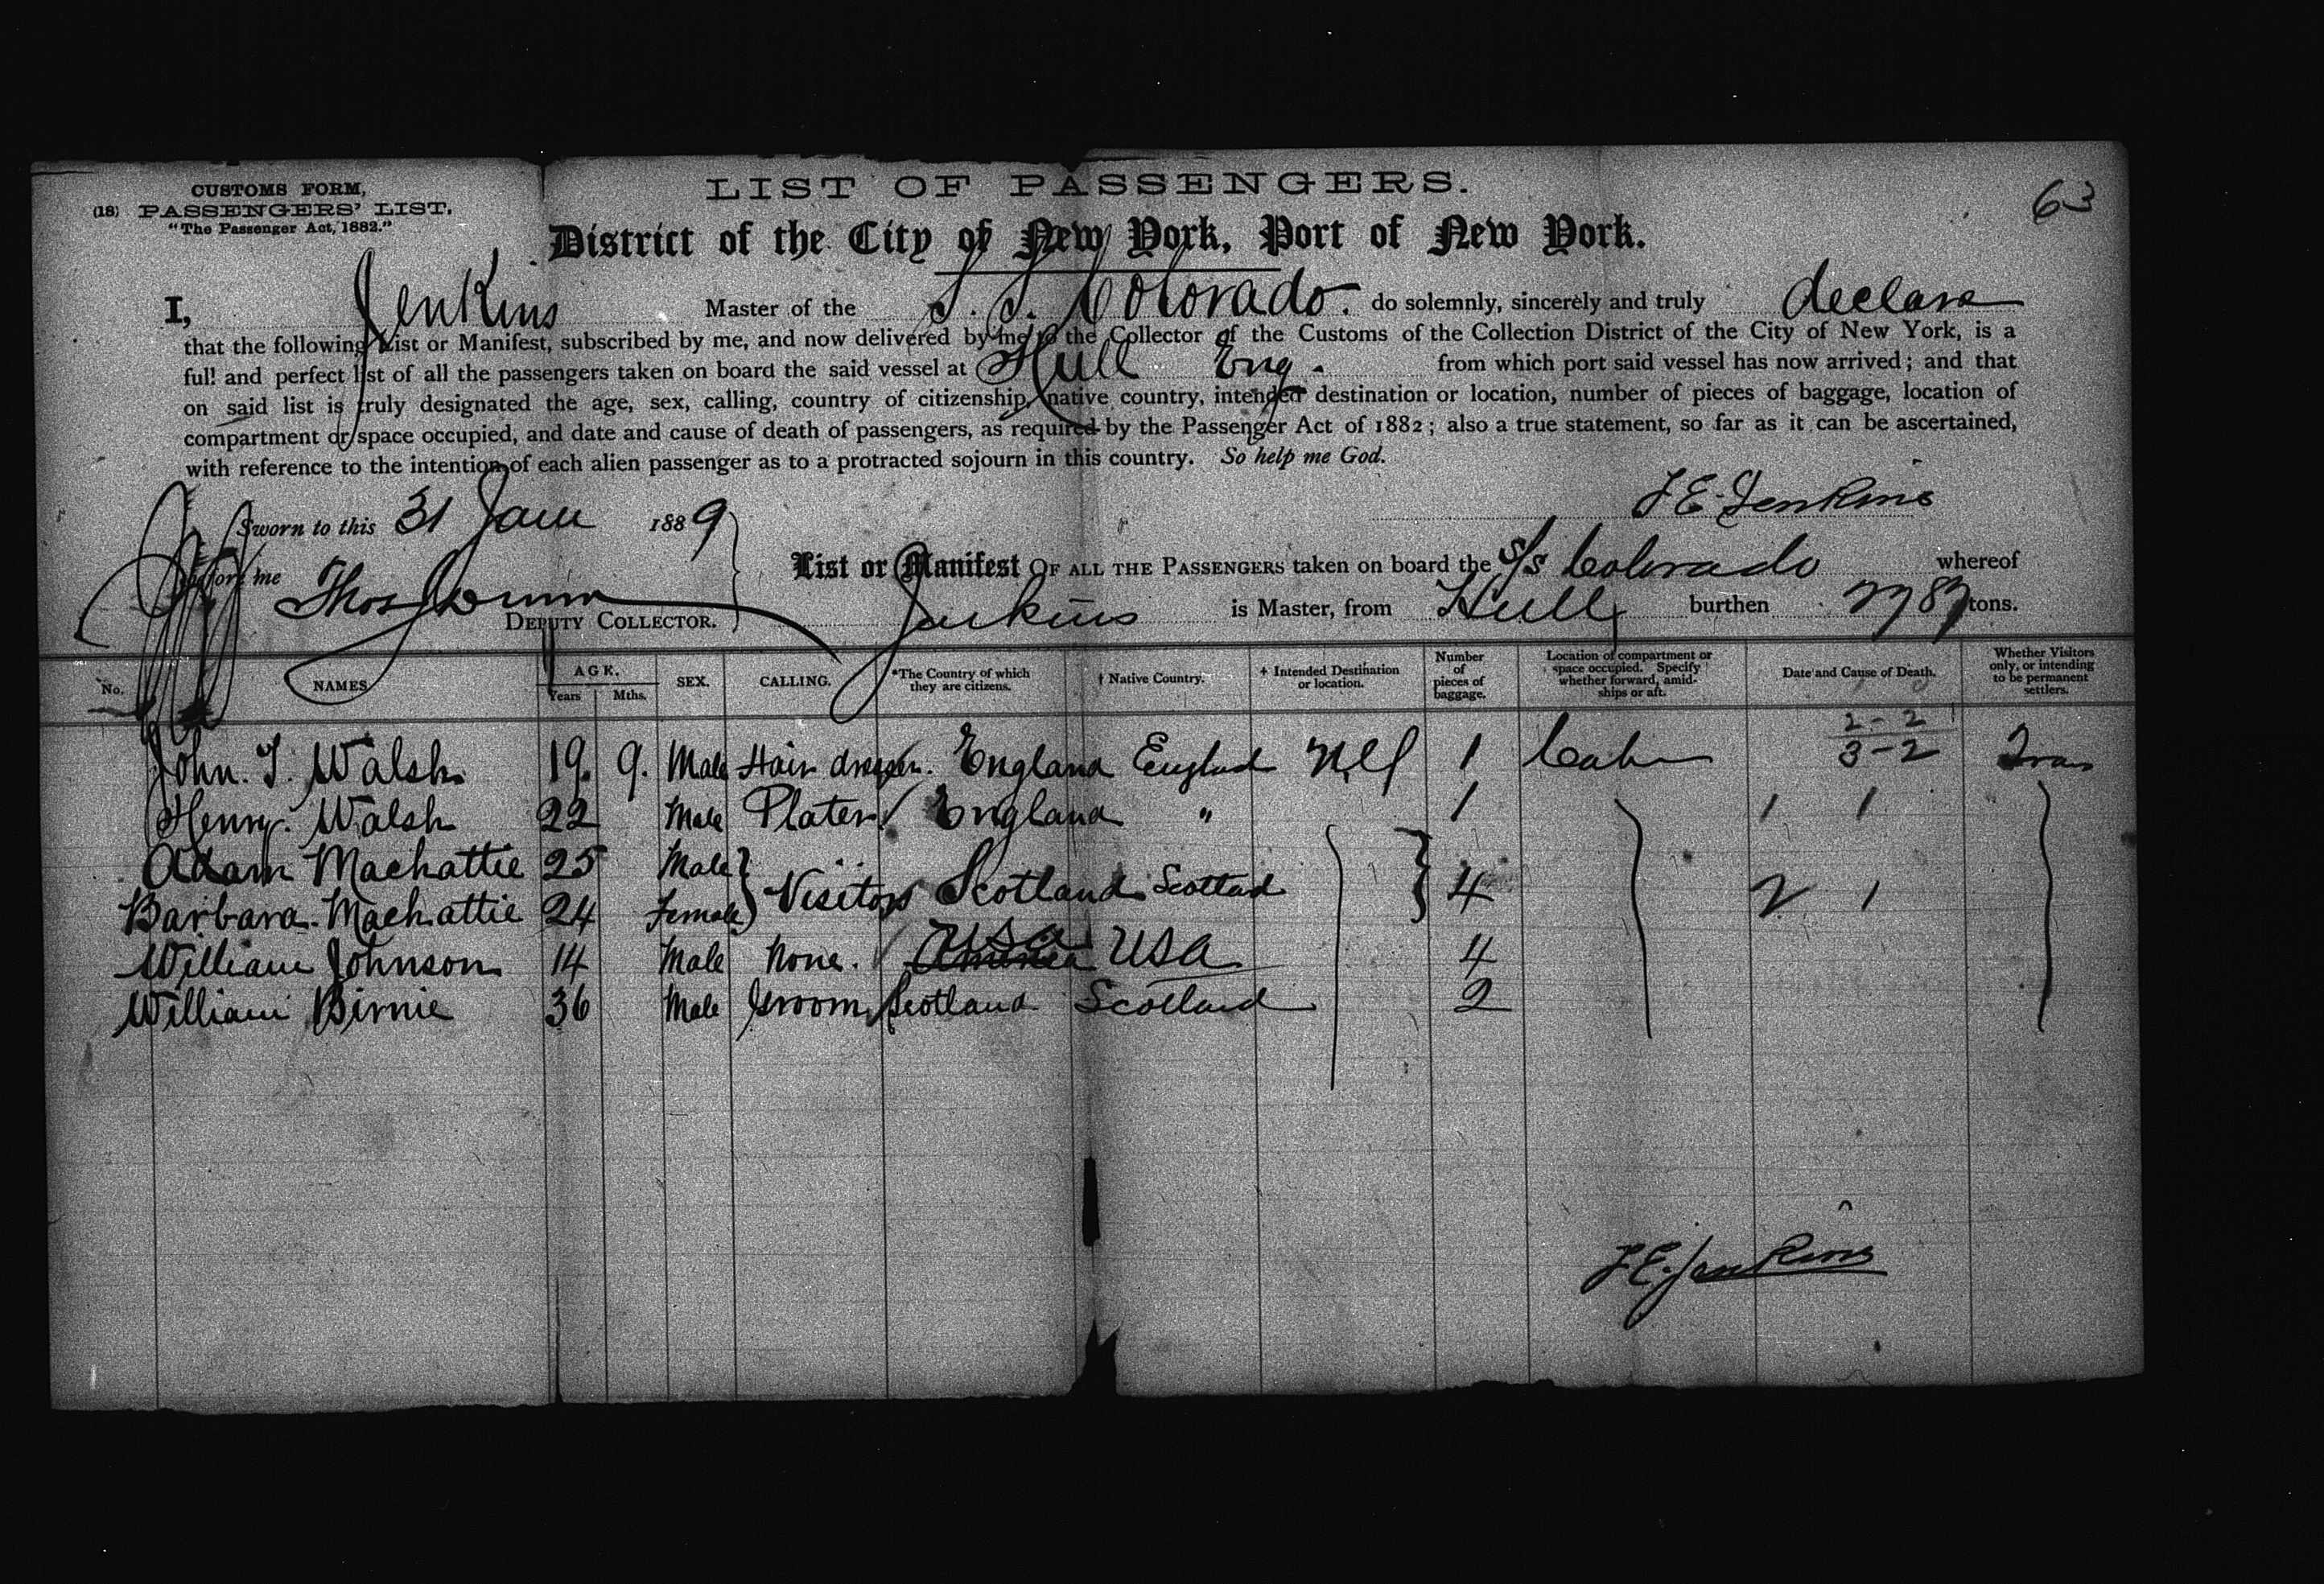 CUSTOMS FORM,
(18) PASSENGERS' LIST.
"The Passenger Act, 1882."
LIST OF PASSENGERS.
63
District of the City of New York, Port of New York.
I, Jenkins Master of the S. S. Colorado. do solemnly, sincerely and truly declare
that the following List or Manifest, subscribed by me, and now delivered by me to the Collector of the Customs of the Collection District of the City of New York, is a
full and perfect list of all the passengers taken on board the said vessel at Hull Eng. from which port said vessel has now arrived; and that
on said list is truly designated the age, sex, calling, country of citizenship, native country, intended destination or location, number of pieces of baggage, location of
compartment or space occupied, and date and cause of death of passengers, as required by the Passenger Act of 1882; also a true statement, so far as it can be ascertained,
with reference to the intention of each alien passenger as to a protracted sojourn in this country. So help me God.
J E. Jenkins
Sworn to this 31 Jany 1889
before me Thos Dunn
DEPUTY COLLECTOR.
List or Manifest OF ALL THE PASSENGERS taken on board the S/S Colorado whereof
Jenkins is Master, from Hull burthen 2787 tons.
No. NAMES AGE. Years Mths. SEX. CALLING. *The Country of which they are citizens. † Native Country. + Intended Destination or location. Number of pieces of baggage. Location of compartment or space occupied. Specify whether forward, amidships or aft. Date and Cause of Death. Whether Visitors only, or intending to be permanent settlers.
2-2
John. T. Walsh 19. 9. Male Hair dresser. England England 1 3-2
Henry. Walsh 22 Male Plater England " 1 1 1
Adam Machattie 25 Male
Barbara. Machattie 24 Female Visitors Scotland Scotland 4 2 1
William Johnson 14 Male None. America USA USA 4
William Birnie 36 Male Groom Scotland Scotland 2
J E. Jenkins